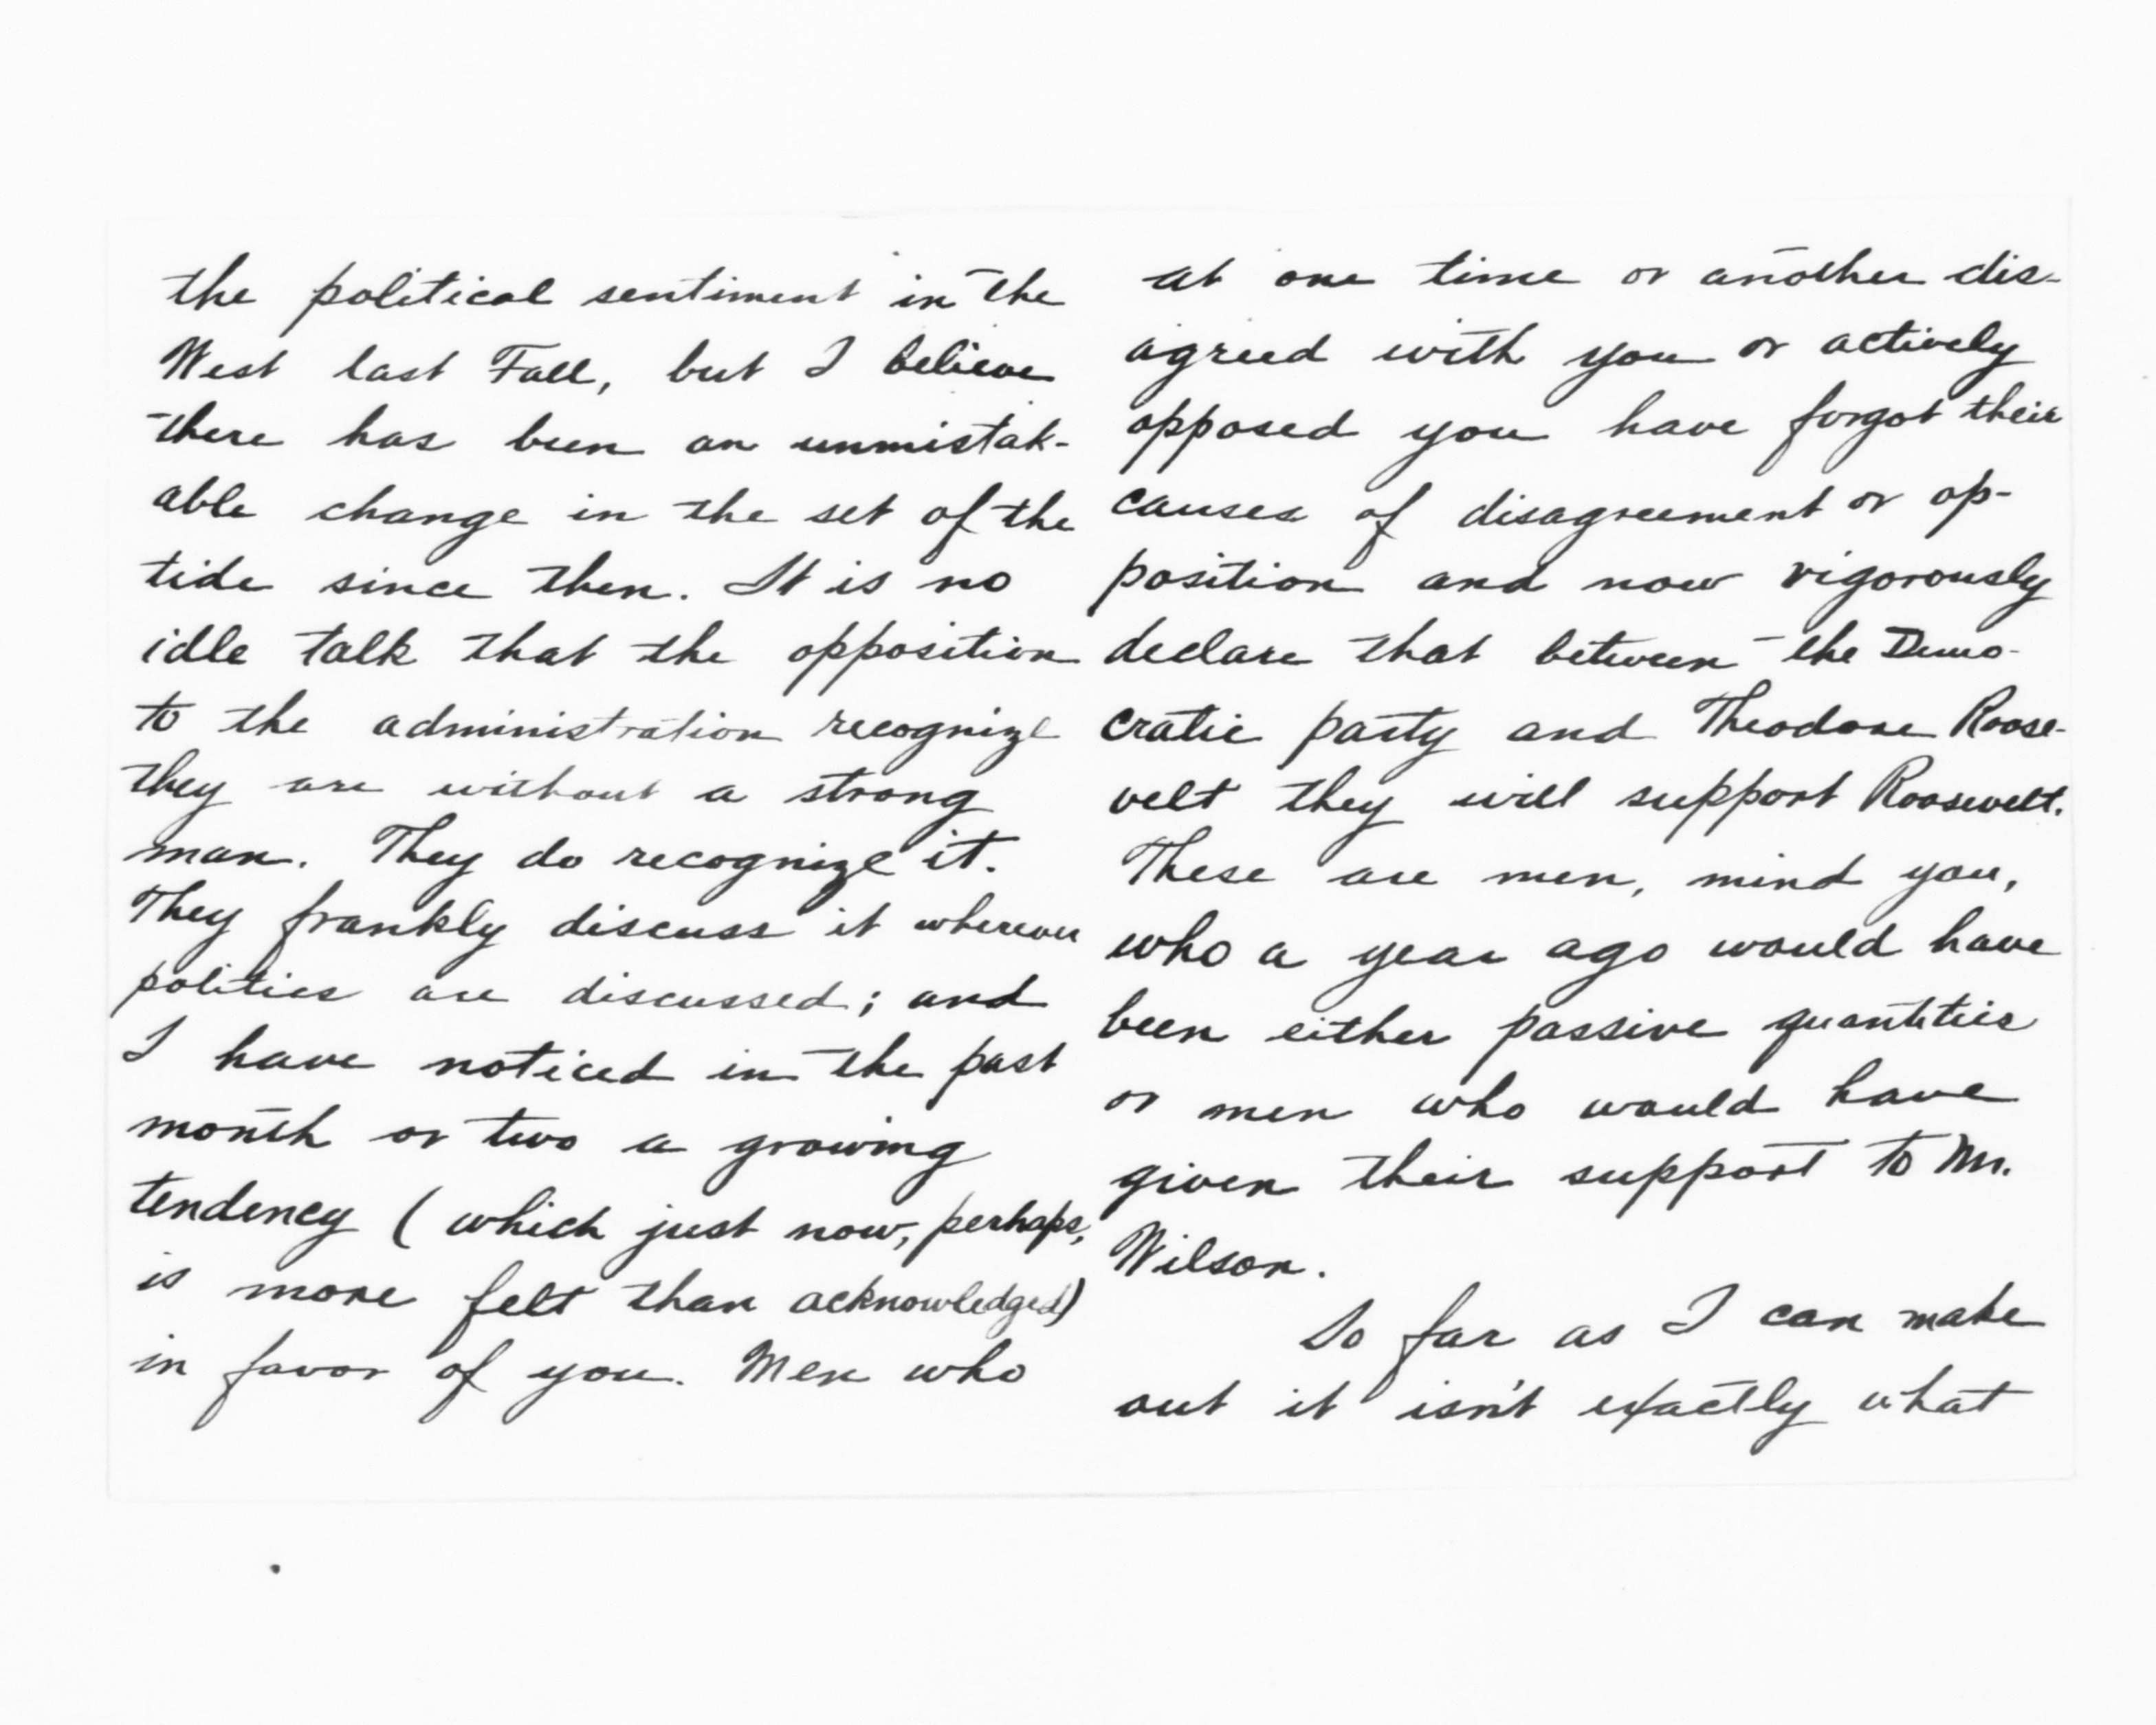 the political sentiment in the
West last Fall, but I believe
there has been an unmistak-
able change in the set of the
tide since then. It is no
idle talk that the opposition
to the administration recognize
they are without a strong
man. They do recognize it.
They frankly discuss it wherever
politics are discussed; and
I have noticed in the past
month or two a growing
tendency (which just now, perhaps,
is more felt than acknowledged)
in favor of you. Men who
at one time or another dis-
agreed with you or actively
opposed you have forgot their
causes of disagreement or op-
position and now vigorously
declare that between the Demo-
cratic party and Theodore Roose-
velt they will support Roosevelt.
These are men, mind you,
who a year ago would have
been either passive quantities
or men who would have
given their support to Mr.
Wilson.
So far as I can make
out it isn't exactly what